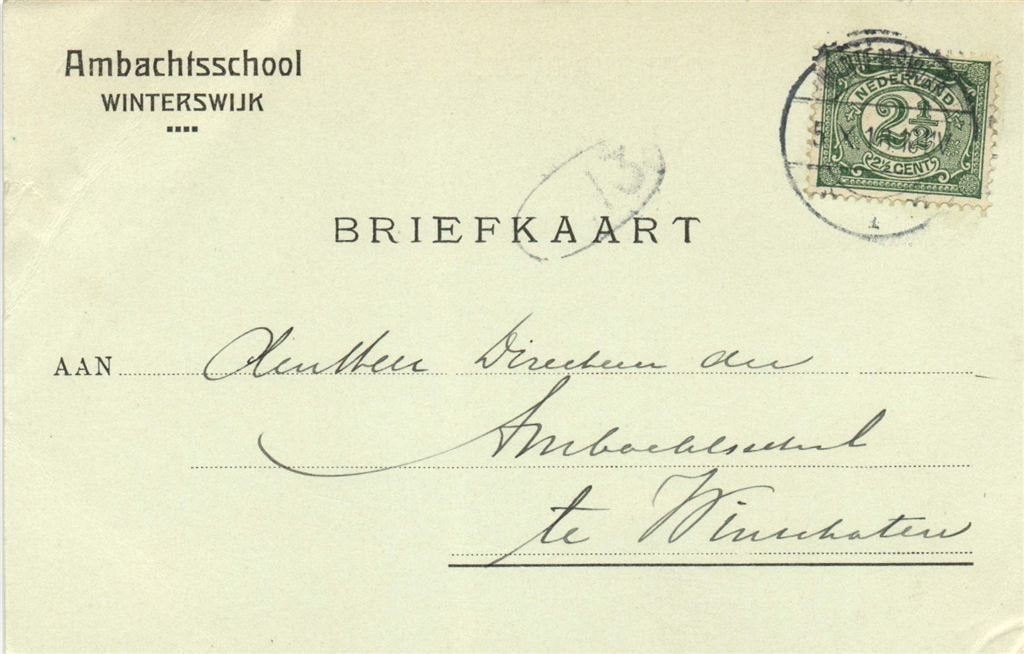 Ambachtsschool
WINTERSWIJK
NEDERLAND
2½
2½ CENT
5 X 1
1
13
BRIEFKAART
AAN Den Heer Directeur der
Ambachtsschool
te Winschoten